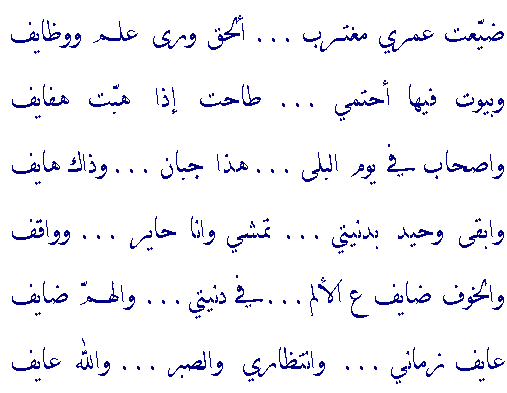 ضيّعت عمري مغترب ... ألحق ورى علم ووظايف
وبيوت فيها أحتمي ... طاحت إذا هبّت هفايف
واصحاب في يوم البلى ... هذا جبان ... وذاك هايف
وابقى وحيد بدنيتي ... تمشي وانا حاير ... وواقف
والخوف ضايف ع الألم ... في دنيتي ... والهمّ ضايف
عايف زماني ... وانتظاري والصبر ... والله عايف